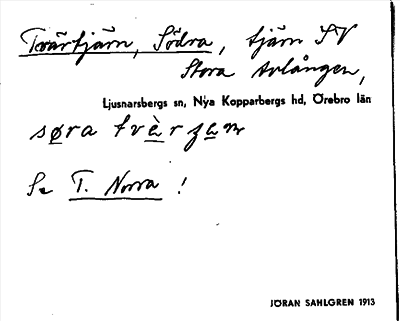 Tvärtjärn, Södra, tjärn SV
Stora Avlången,
Ljusnarsbergs sn, Nya Kopparbergs hd, Örebro län
søra tvèrʒan
Se T. Norra !
JÖRAN SAHLGREN 1913